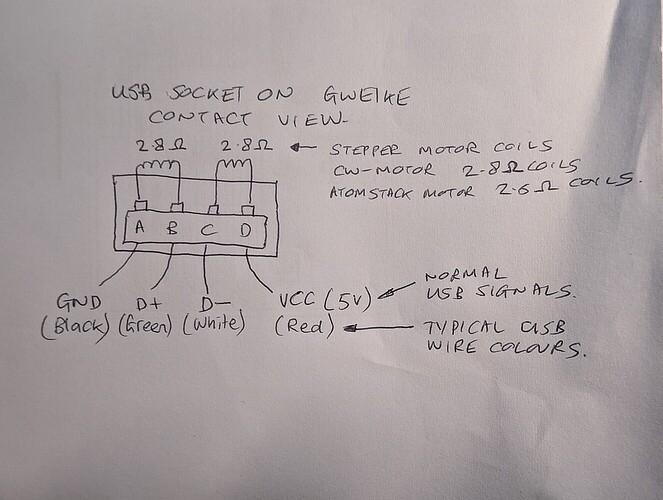 USB SOCKET ON GWEIKE
CONTACT VIEW-
2.8Ω 2.8Ω
STEPPER MOTOR COILS
CW-MOTOR 2.8Ω COILS
ATOMSTACK MOTOR 2.6Ω COILS.
A B C D
GND D+ D- VCC (5V)
(Black) (Green) (White) (Red)
NORMAL
USB SIGNALS.
TYPICAL USB
WIRE COLOURS.